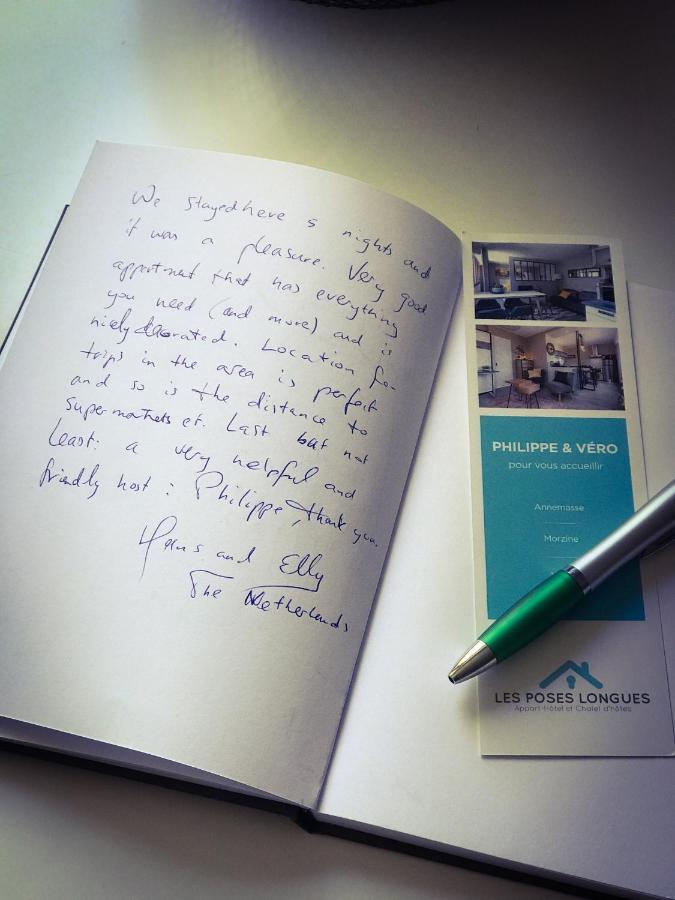 We stayed here 5 nights and
it was a pleasure. Very good
appartment that has everything
you need (and more) and is
nicely decorated. Location for
trips in the area is perfect
and so is the distance to
supermarkets et. Last but not
Least: a very helpful and
friendly host: Philippe, thank you.
Hans and Elly
The Netherlands
PHILIPPE & VÉRO
pour vous accueillir
Annemasse
Morzine
LES POSES LONGUES
Appart-Hôtel et Chalet d'hôtes